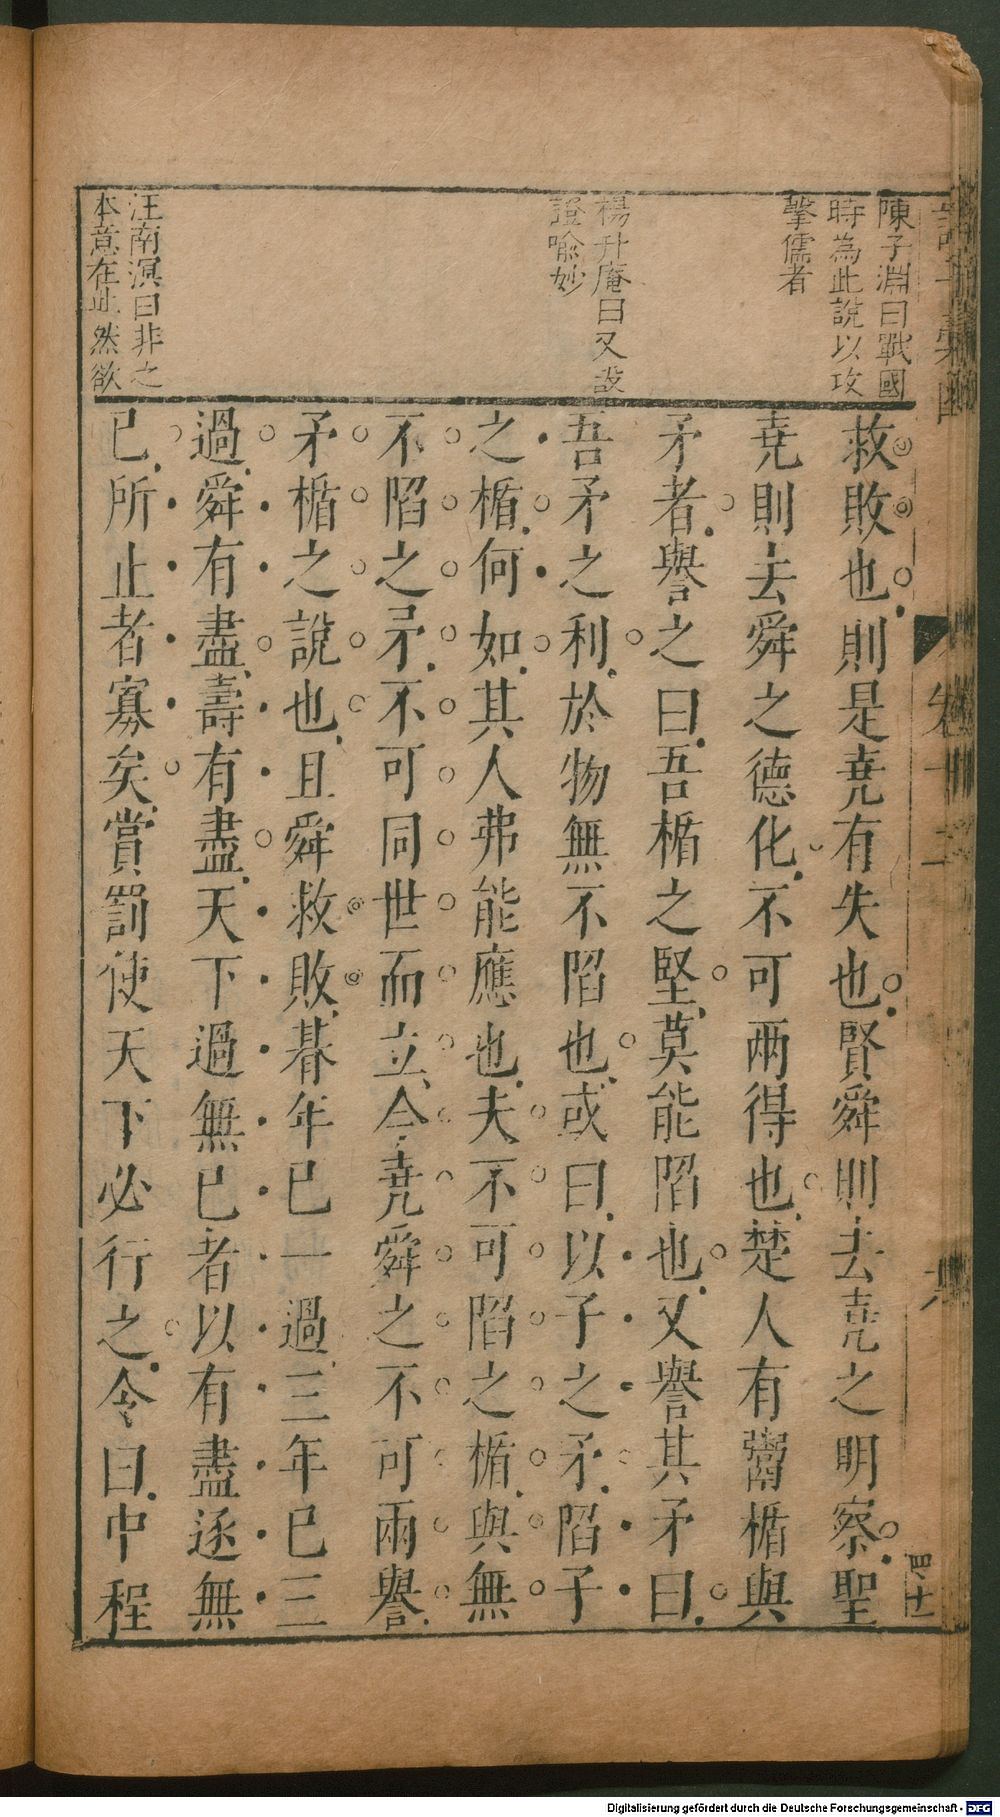 陳子淵曰戰國
時為此說以攻
擊儒者
楊升庵曰又設
證喻妙
汪南溟曰非之
本意在此然欲
救敗也則是堯有失也賢舜則去堯之明察聖
堯則去舜之德化不可兩得也楚人有鬻楯與
矛者譽之曰吾楯之堅莫能陷也又譽其矛曰
吾矛之利於物無不陷也或曰以子之矛陷子
之楯何如其人弗能應也夫不可陷之楯與無
不陷之矛不可同世而立今堯舜之不可兩譽
矛楯之說也且舜救敗朞年已一過三年已三
過舜有盡壽有盡天下過無已者以有盡逐無
已所止者寡矣賞罰使天下必行之令曰中程
Digitalisierung gefördert durch die Deutsche Forschungsgemeinschaft - DFG